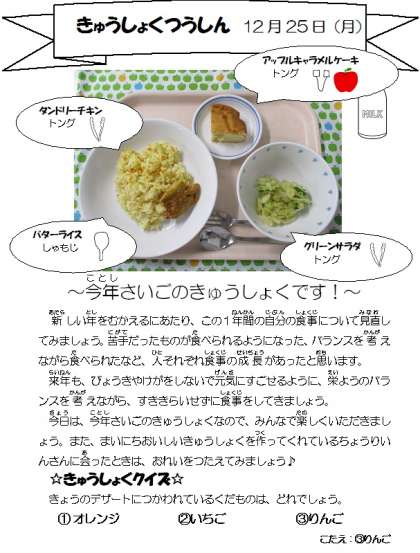 きゅうしょくつうしん　１２月２５日（月）
アップルキャラメルケーキ
トング
MILK
タンドリーチキン
トング
バターライス
しゃもじ
グリーンサラダ
トング
～今年さいごのきゅうしょくです！～
ことし
新しい年をむかえるにあたり、この１年間の自分の食事について見直し
あたら　とし　ねんかん　じぶん　しょくじ　みなお
てみましょう。苦手だったものが食べられるようになった、バランスを考え
にがて　た　かんが
ながら食べられたなど、人それぞれ食事の成長があったと思います。
た　ひと　しょくじ　せいちょう　おも
来年も、びょうきやけがをしないで元気にすごせるように、栄ようのバラ
らいねん　げんき　えい
ンスを考えながら、すききらいせずに食事をしてきましょう。
かんが　しょくじ
今日は、今年さいごのきゅうしょくなので、みんなで楽しくいただきまし
きょう　ことし　たの
ょう。また、まいにちおいしいきゅうしょくを作ってくれているちょうりい
つく
んさんに会ったときは、おれいをつたえてみましょう♪
あ
☆きゅうしょくクイズ☆
きょうのデザートにつかわれているくだものは、どれでしょう。
①オレンジ　②いちご　③りんご
こたえ：③りんご